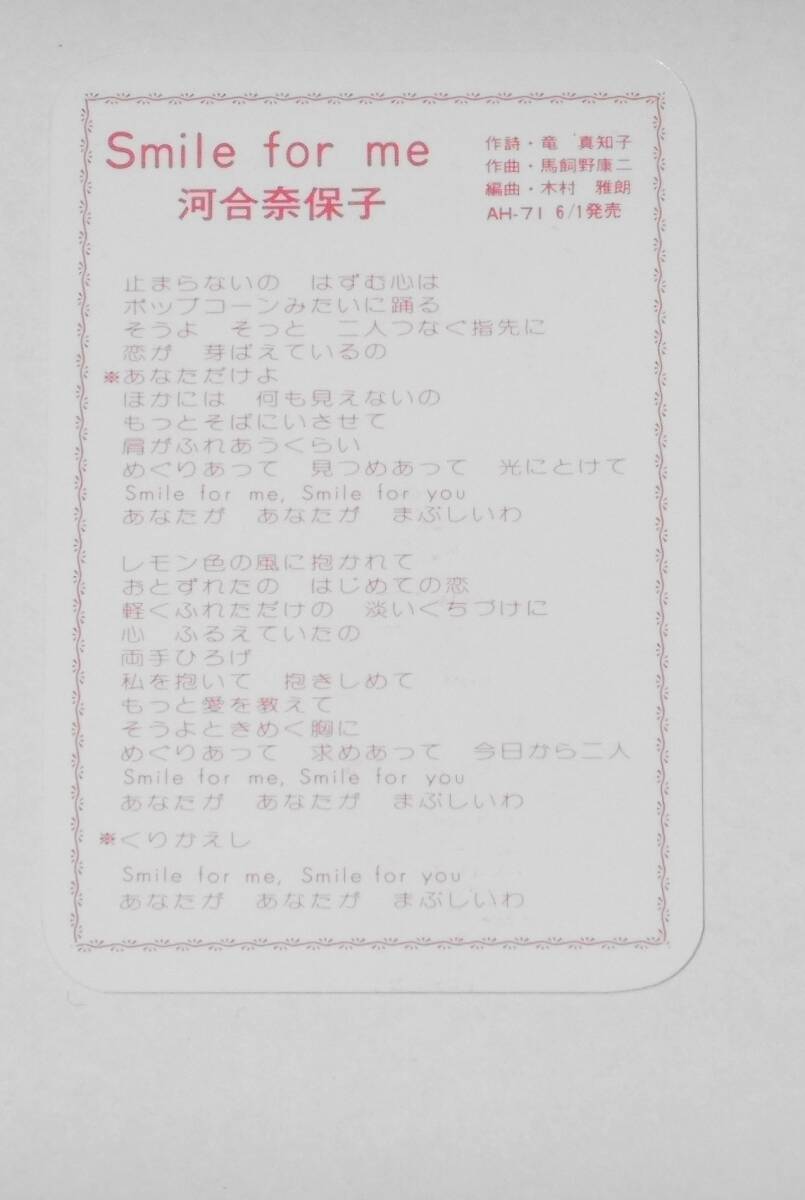 Smile for me
河合奈保子
作詩・竜 真知子
作曲・馬飼野康二
編曲・木村 雅朗
AH-71 6/1発売
止まらないの はずむ心は
ポップコーンみたいに踊る
そうよ そっと 二人つなぐ指先に
恋が 芽ばえているの
※あなただけよ
ほかには 何も見えないの
もっとそばにいさせて
肩がふれあうくらい
めぐりあって 見つめあって 光にとけて
Smile for me, Smile for you
あなたが あなたが まぶしいわ
レモン色の風に抱かれて
おとずれたの はじめての恋
軽くふれただけの 淡いくちづけに
心 ふるえていたの
両手ひろげ
私を抱いて 抱きしめて
もっと愛を教えて
そうよときめく胸に
めぐりあって 求めあって 今日から二人
Smile for me, Smile for you
あなたが あなたが まぶしいわ
※くりかえし
Smile for me, Smile for you
あなたが あなたが まぶしいわ